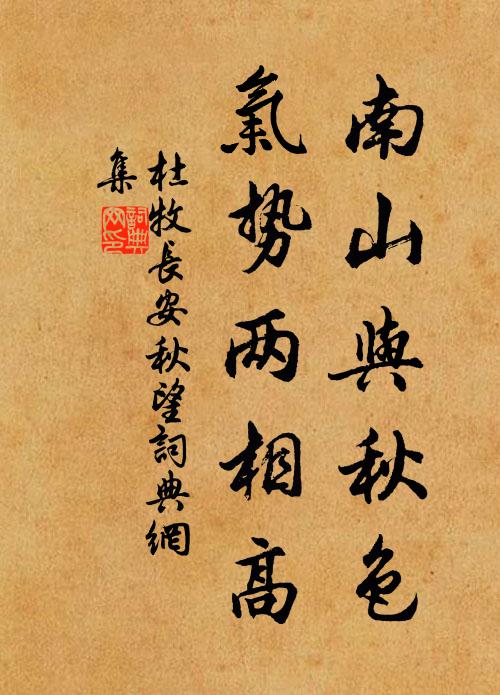 南山與秋色
氣势两相高
杜牧長安秋望詞典網
集
詞典网印